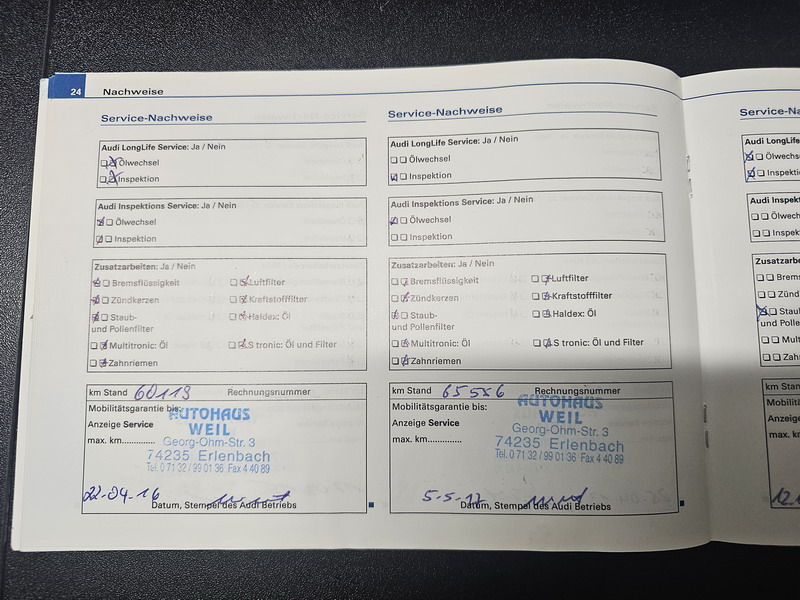 24 Nachweise
Service-Nachweise
Audi LongLife Service: Ja / Nein
Ölwechsel
Inspektion
Audi Inspektions Service: Ja / Nein
Ölwechsel
Inspektion
Zusatzarbeiten: Ja / Nein
Bremsflüssigkeit Luftfilter
Zündkerzen Kraftstofffilter
Staub- Haldex: Öl
und Pollenfilter
Multitronic: Öl S tronic: Öl und Filter
Zahnriemen
km Stand 60113 Rechnungsnummer
Mobilitätsgarantie bis:
AUTOHAUS
Anzeige Service WEIL
max. km.............. Georg-Ohm-Str. 3
74235 Erlenbach
Tel. 0 71 32 / 99 01 36 Fax 4 40 89
22-04-16
Datum, Stempel des Audi Betriebs
Service-Nachweise
Audi LongLife Service: Ja / Nein
Ölwechsel
Inspektion
Audi Inspektions Service: Ja / Nein
Ölwechsel
Inspektion
Zusatzarbeiten: Ja / Nein
Bremsflüssigkeit Luftfilter
Zündkerzen Kraftstofffilter
Staub- Haldex: Öl
und Pollenfilter
Multitronic: Öl S tronic: Öl und Filter
Zahnriemen
km Stand 65556 Rechnungsnummer
Mobilitätsgarantie bis: AUTOHAUS
Anzeige Service WEIL
max. km.............. Georg-Ohm-Str. 3
74235 Erlenbach
Tel. 0 71 32 / 99 01 36 Fax 4 40 89
5-5-17
Datum, Stempel des Audi Betriebs
Service-N
Audi LongLife
Ölwechs
Inspektio
Audi Inspekti
Ölwech
Inspekti
Zusatzarbei
Brems
Zünd
Stau
und Pollenfi
Mult
Zah
km Stand
Mobilität
Anzeige
max. km
12.1